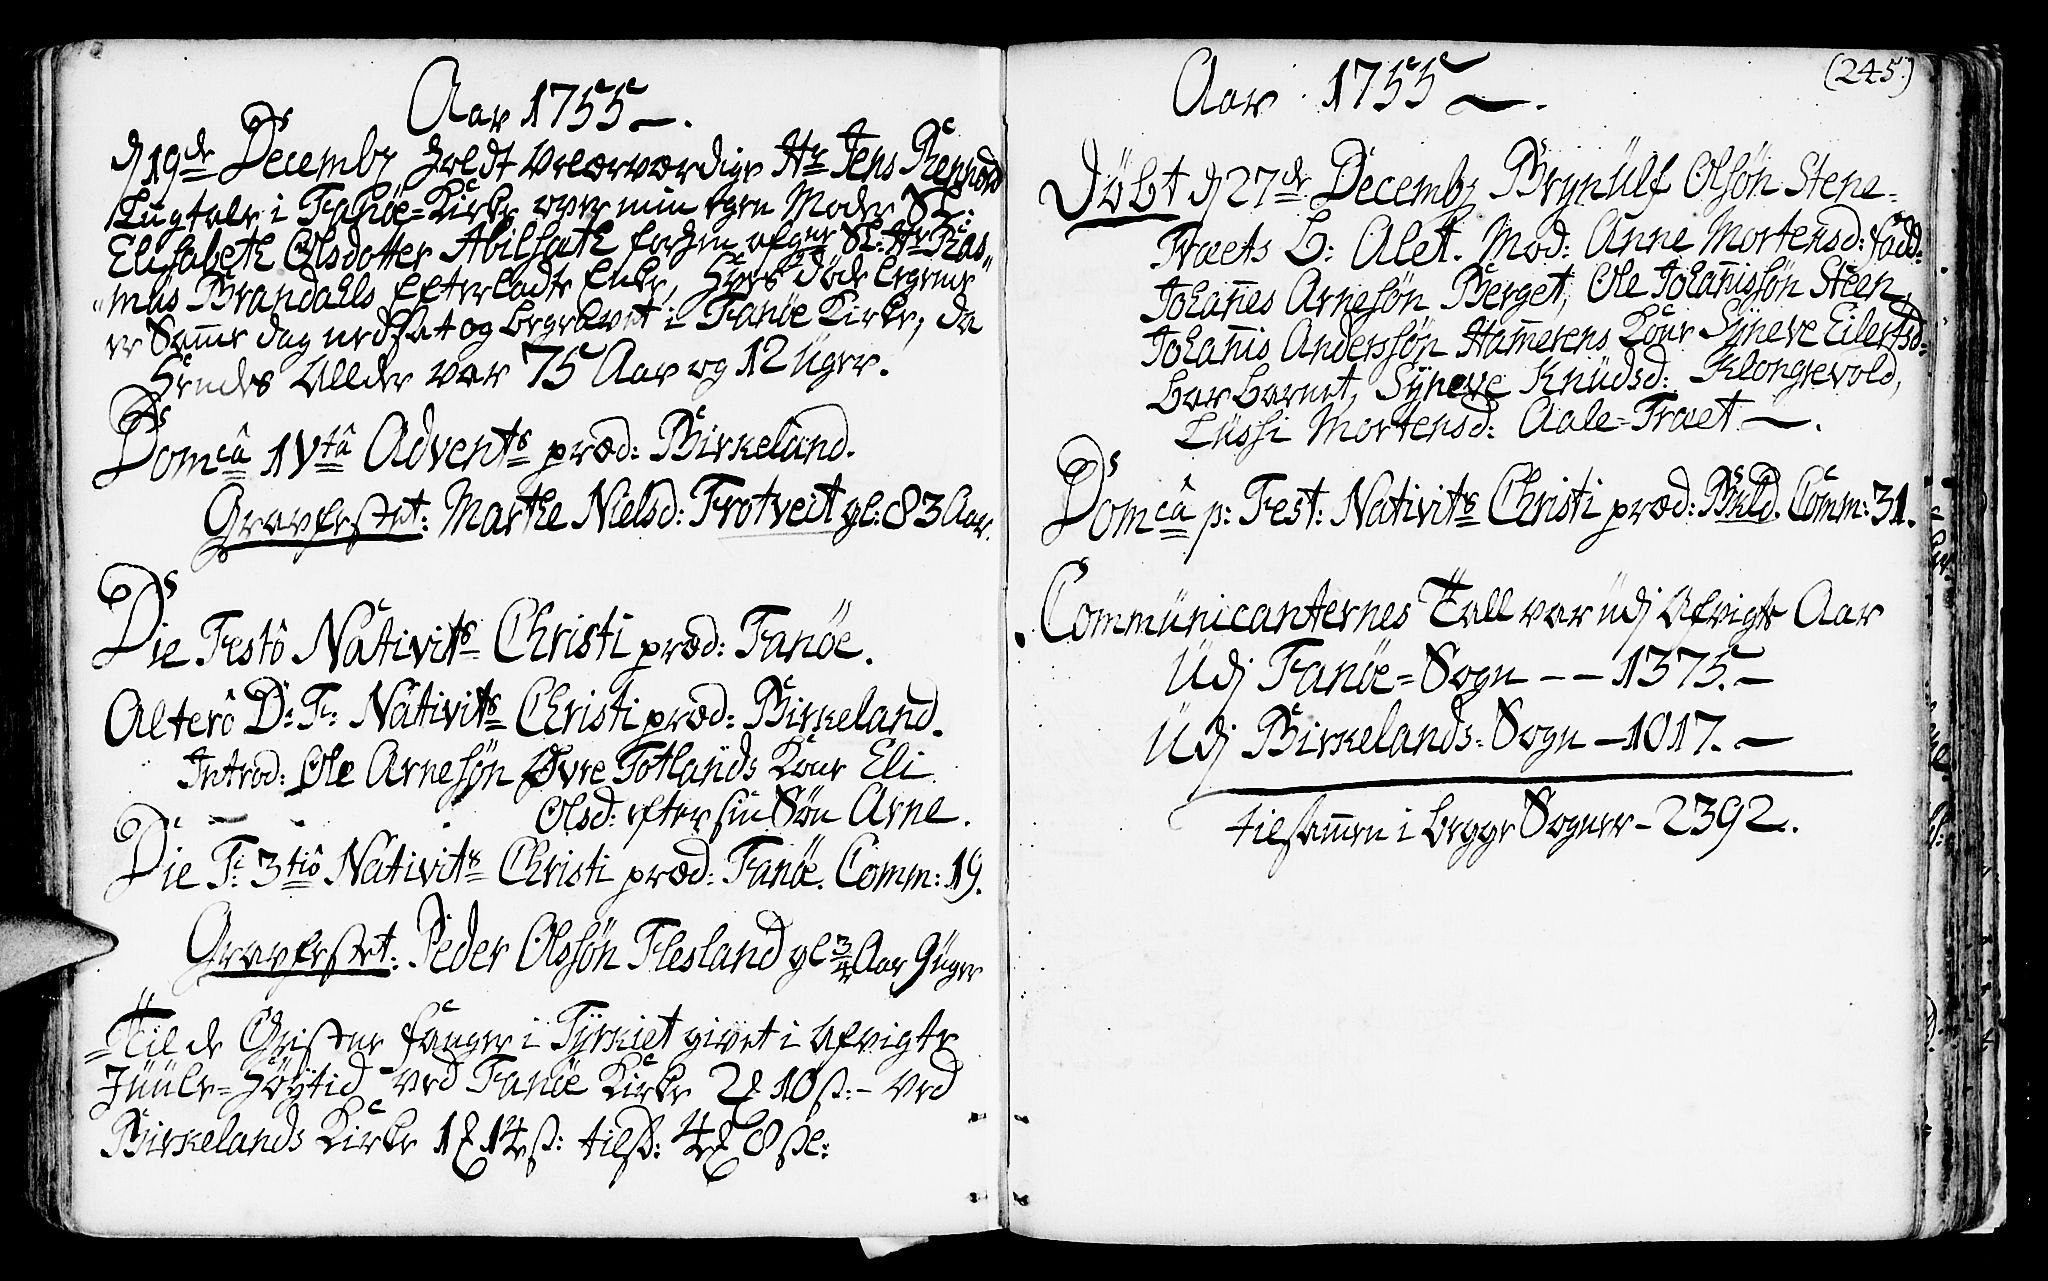 Aar 1755.
d 19de Decembr holdt Velærværdige Hr Jens Rennord
Liigtale i Fanöe=Kirke over min egen Moder Sl:
Elisabeth Olsdotter Abilseth forhen afgne Sl: Hr Ras=
mus Brandahls Efterladte Enke, hvis døde legeme
er Samme dag nedsat og begravet i Fanöe Kirke, da
hendes Allder var 75 Aar og 12 Uger.
Domcâ IVtâ Advents præd: Birkeland.
Gravfæstet: Marthe Nielsd: Trotveit gl: 83 Aar.
Die Festô Nativits Christi præd: Fanöe.
Alterô D: F: Nativits Christi præd: Birkeland.
Introd: Ole Arnesön Øvre Totlands Kone Eli
Olsd: efter sin Søn Arne.
Die F: 3tiô Nativits Christi præd: Fanöe. Comm: 19.
Gravfæstet: Peder Olssön Flesland gl 3/4 Aar 9 uger
Til de Christne fanger i Tyrkiet givet i Afvigte
Juule=Høytid ved Fanöe Kirke 2 10 ß:- ved
Birkelands Kirke 1 14 ß: tilß: 4 8 ßl:
(245)
Aar 1755.
Döbt d 27de Decembr Brynülf Olsön Stene=
Træets B: Alet. Mod: Anne Mortensd: fadd:
Johannes Arnesön Berget, Ole Johannissön Steen,
Johannis Anderssön Hammerens Kone Syneve Eilertsd:
bar barnet, Syneve Knüdsd: Klongrevold,
Lüssi Mortensd: Aale=Træet.
Domcâ p: Fest: Nativits Christi præd: Bkld. Comm: 31.
Commünicanternes Tall var üdj Afvigte Aar
Üdj Fanöe=Sogn -- 1375.-
Üdj Birkelands=Sogn - 1017.-
tilsammen i begge Sogner - 2392.